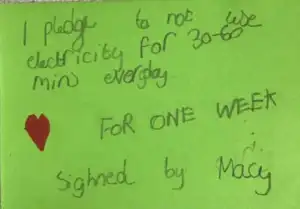 I pledge to not use
electricity for 30-60
mins everyday
FOR ONE WEEK
Sighned by Macy